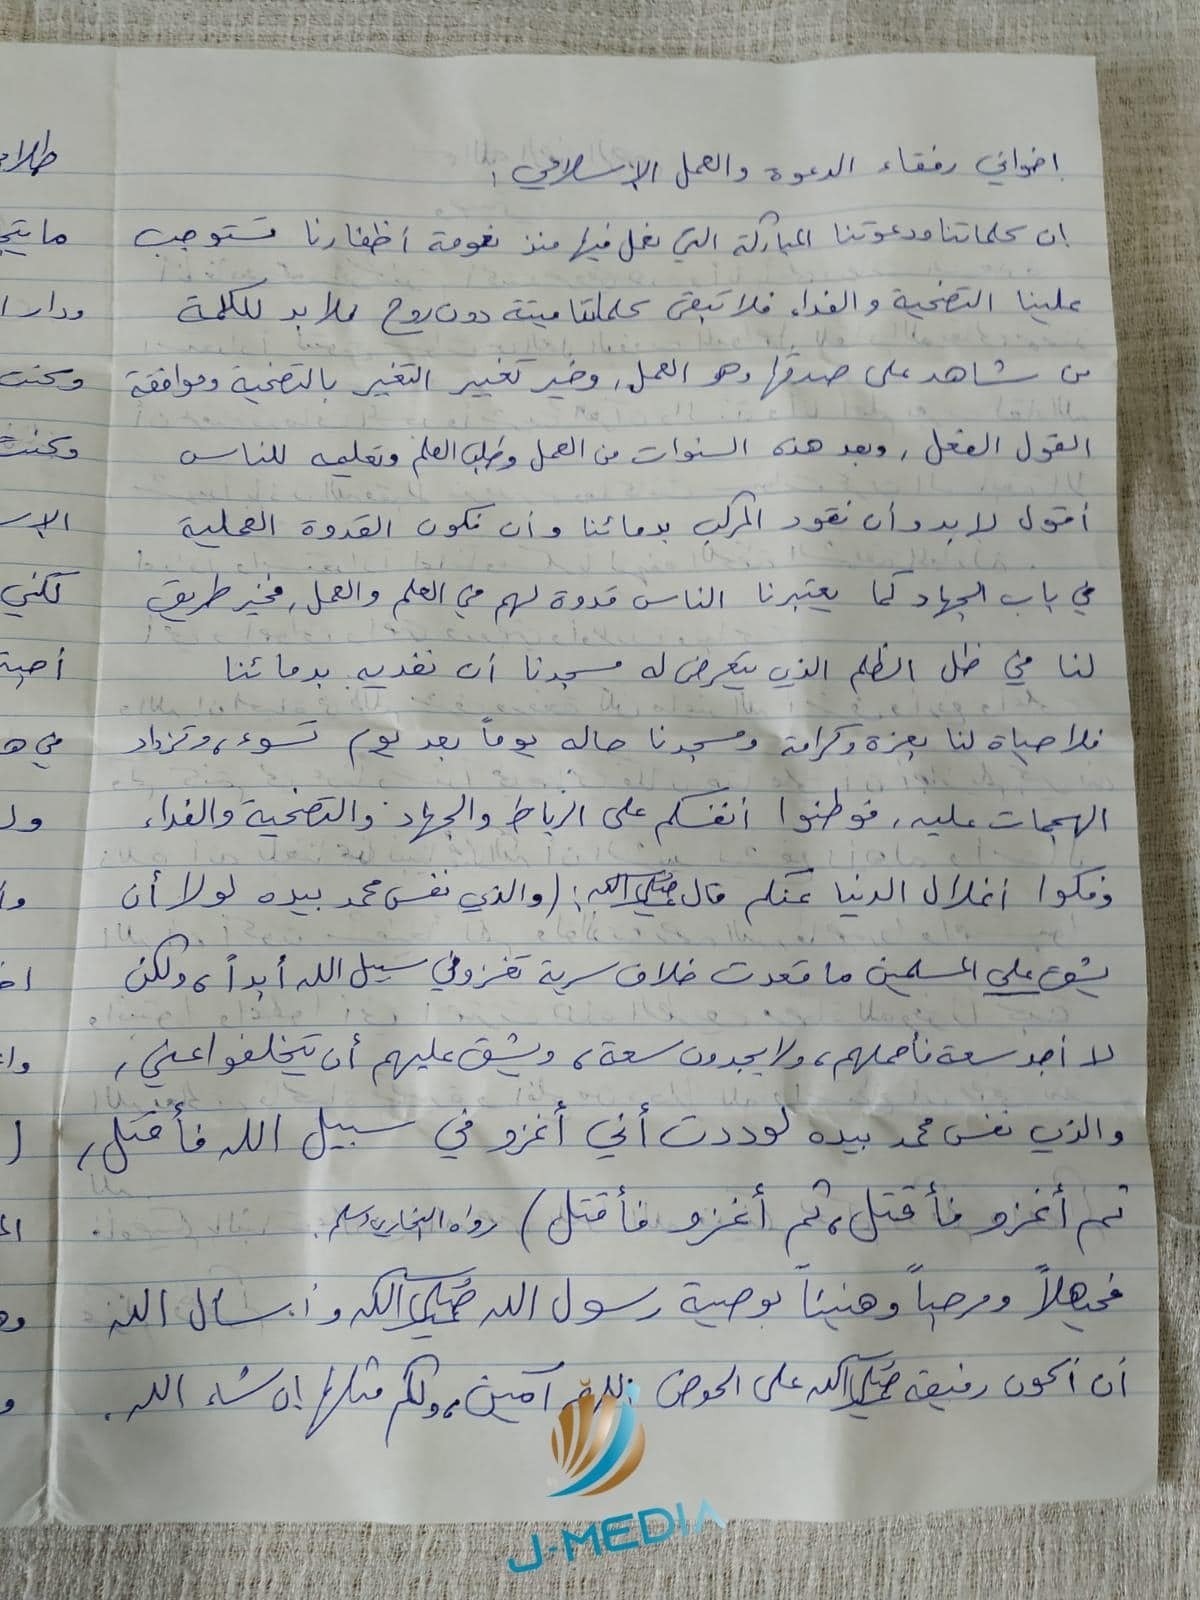 إخواني رفقاء الدعوة والعمل الإسلامي:
إن كلماتنا ودعوتنا المباركة التي نعمل فيها منذ نعومة أظفارنا تستوجب
علينا التضحية والفداء فلا تبقى كلماتنا ميتة دون روح فلا بد للكلمة
من شاهد على صدقها وهو العمل، وخير تغيير التغيير بالتضحية وموافقة
القول الفعل، وبعد هذه السنوات من العمل وطلب العلم وتعليمه للناس
أقول لا بد وأن نقود المركب بدمائنا وأن نكون القدوة العملية
في باب الجهاد كما يعتبرنا الناس قدوة لهم في العلم والعمل، فخير طريق
لنا في ظل الظلم الذي يتعرض له مسجدنا أن نفديه بدمائنا
فلا حياة لنا بعزة وكرامة ومسجدنا حاله يوماً بعد يوم تسوء، وتزداد
الهجمات عليه، فوطنوا أنفسكم على الرباط والجهاد والتضحية والفداء
وفكوا أغلال الدنيا عنكم قال ﷺ: (والذي نفس محمد بيده لولا أن
يشق على المسلمين ما قعدت خلاف سرية تغزو في سبيل الله أبداً، ولكن
لا أجد سعة فأحملهم، ولا يجدون سعة، ويشق عليهم أن يتخلفوا عني،
والذي نفس محمد بيده لوددت أني أغزو في سبيل الله فأقتل،
ثم أغزو فأقتل، ثم أغزو فأقتل) رواه البخاري ومسلم.
فحيهلاً ومرحباً وهنيئاً بوصية رسول الله ﷺ وأسأل الله
أن أكون رفيقه ﷺ على الحوض اللهم آمين، ولكم مثلها إن شاء الله.
J-MEDIA